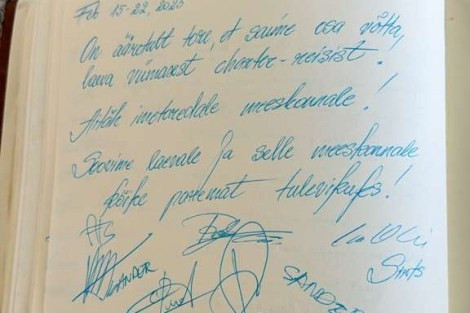 Feb 15-22, 2025
On ääretult tore, et saime osa võtta,
laeva viimasest charter-reisist.
Aitäh imetoredale meeskonnale!
Soovime laevale ja selle meeskonnale
kõike paremat tulevikuks!
SANDER